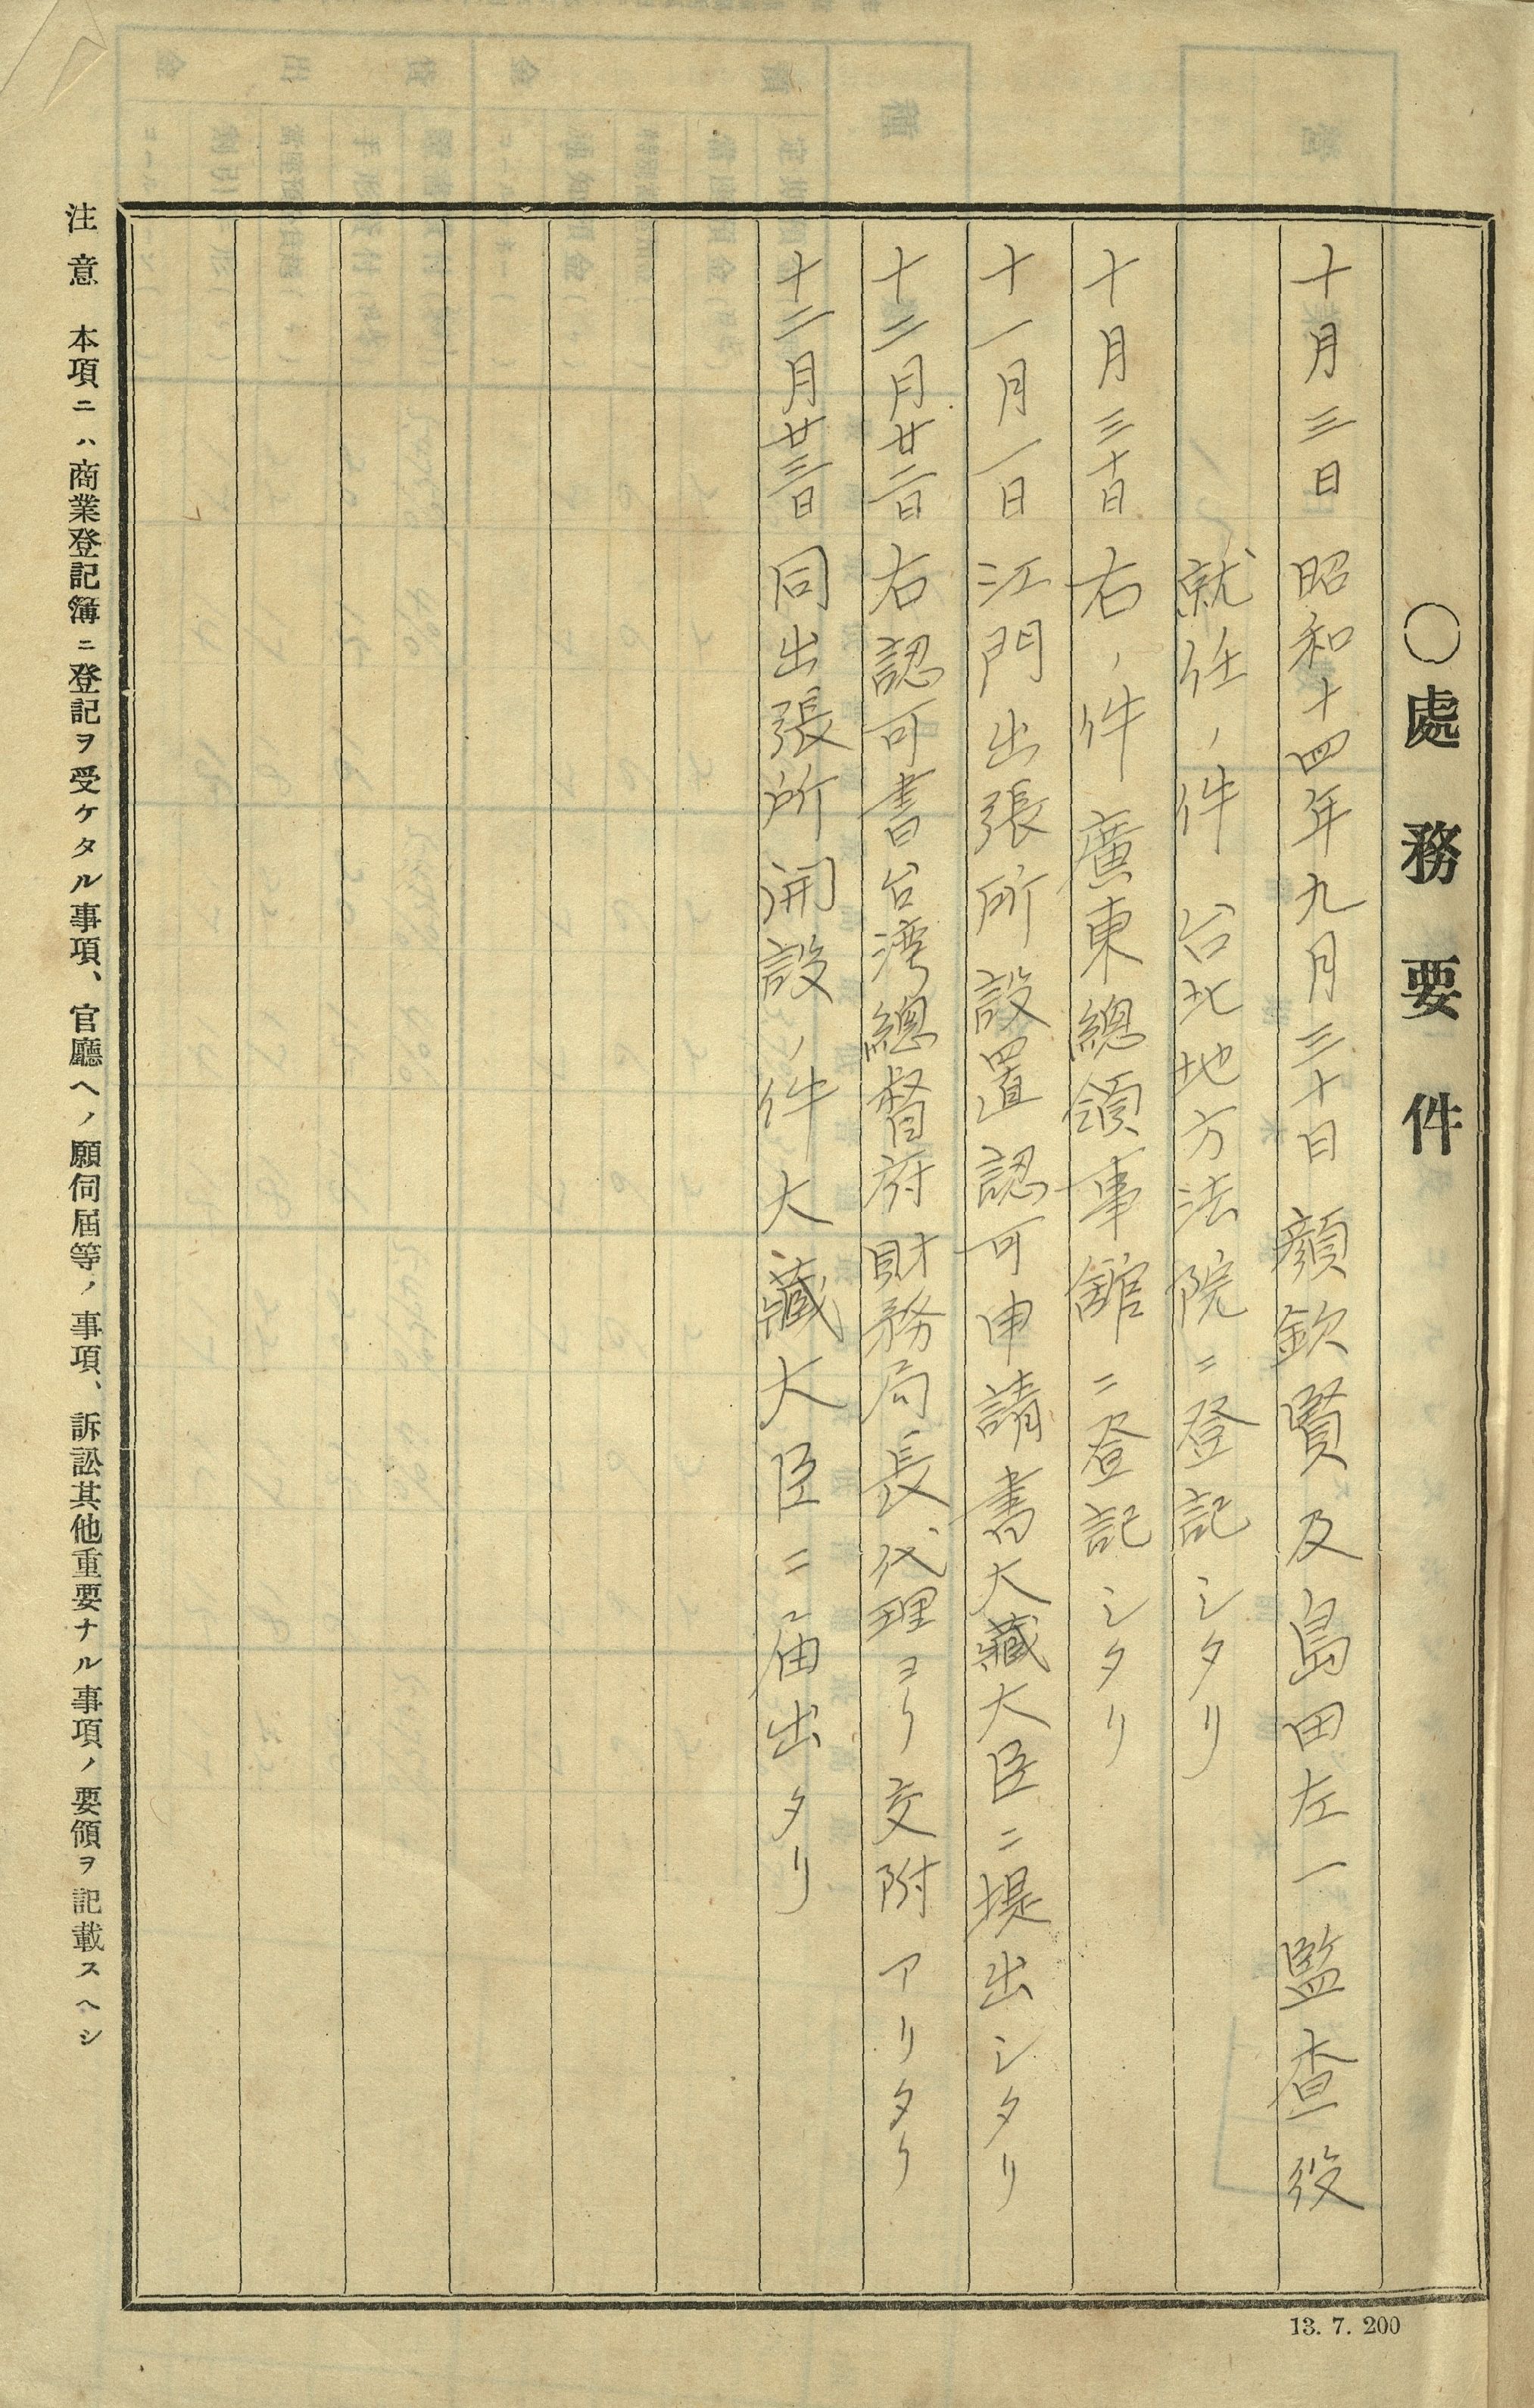 ○處務要件
十月三日 昭和十四年九月三十日 顏欽賢及島田左一監査役
就任ノ件 台北地方法院ニ登記シタリ
十月三十日 右ノ件 廣東總領事館ニ登記シタリ
十一月一日 江門出張所設置認可申請書大藏大臣ニ提出シタリ
十二月廿二日 右認可書台湾總督府財務局長代理ヨリ交附アリタリ
十二月廿三日 同出張所開設ノ件大藏大臣ニ届出タリ
注意 本項ニハ商業登記簿ニ登記ヲ受ケタル事項、官廳ヘノ願伺屆等ノ事項、訴訟其他重要ナル事項ノ要領ヲ記載スヘシ
13. 7. 200